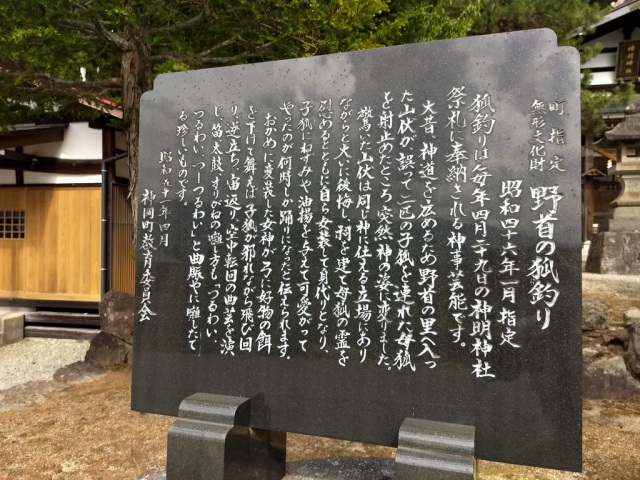 町指定
無形文化財
野首の狐釣り
昭和四十六年一月指定
狐釣りは毎年四月二十九日の神明神社
祭礼に奉納される神事芸能です。
大昔、神道を広めるため野首の里へ入っ
た山伏が、誤って二匹の子狐を連れた母狐
を射止めたところ、突然神の姿に変りました。
驚いた山伏は同じ神に仕える立場にあり
ながらと大いに後悔し、祠を建て母狐の霊を
慰めるとともに自ら女装して身代りとなり、
子狐にねずみや油揚を与えて可愛がって
やったのが何時しか踊りになったと伝えられます。
おかめに変装した女神が弓に好物の餌
を下げて舞えば、子狐が邪れながら飛び回
り、逆立ち、宙返り、空中転回の曲芸を演
じ、笛、太鼓、すりがねの囃し方も「つるわい、
つるわい、つーつるわい」と曲賑やに囃したて
る珍しいものです。
昭和五十一年四月
神岡町教育委員会